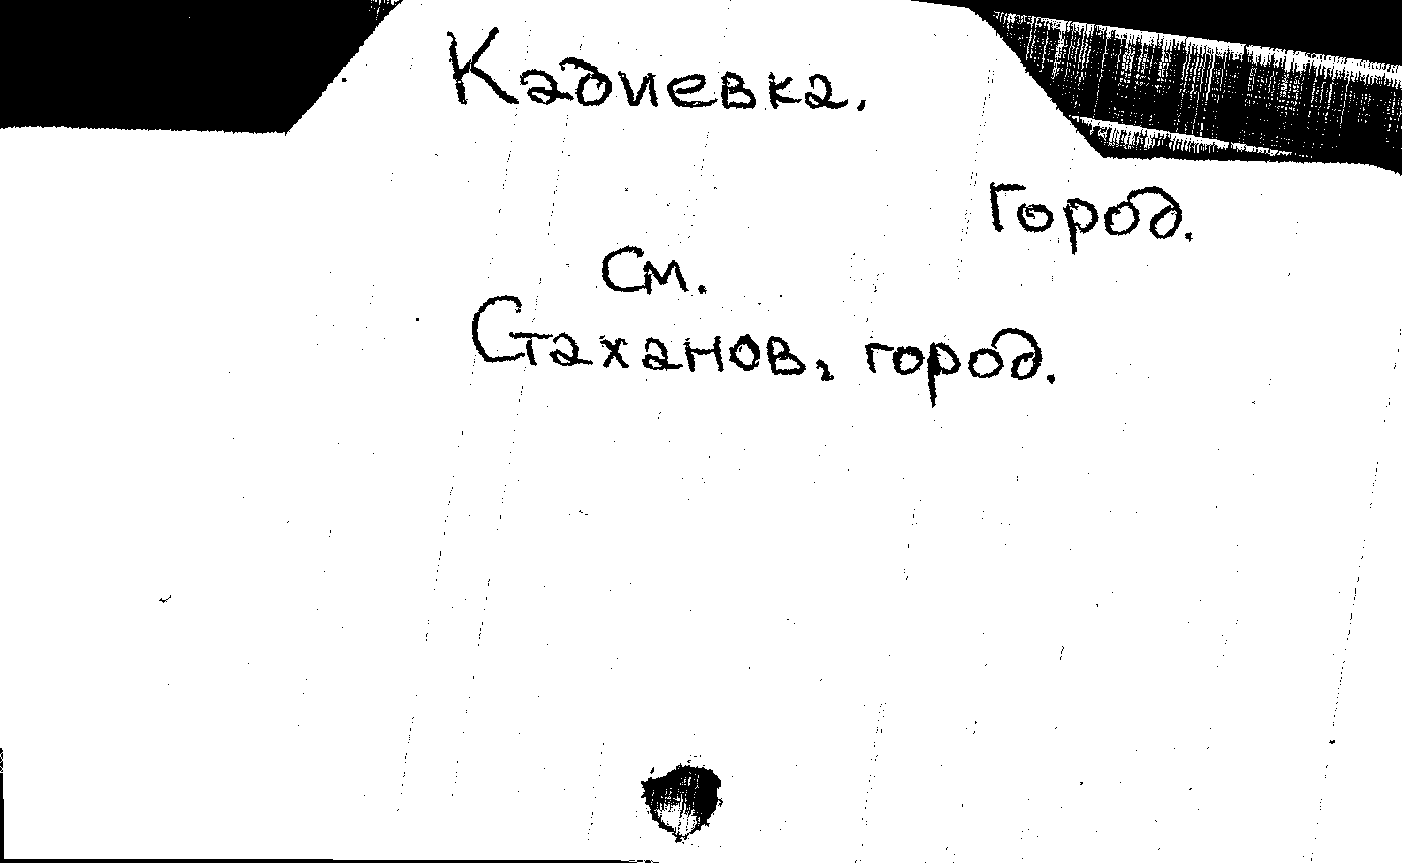 Кадиевка.
город.
См.
Стаханов, город.